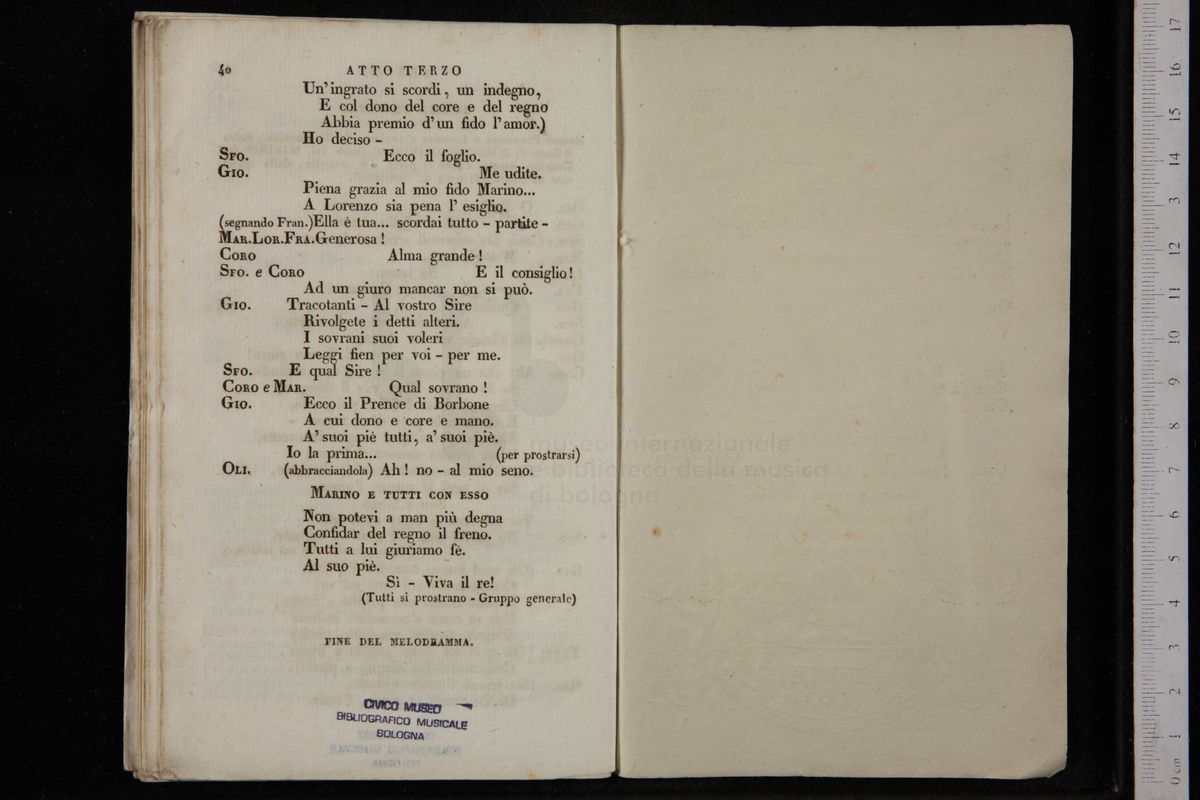 40 ATTO TERZO
Un' ingrato si scordi, un indegno,
E col dono del core e del regno
Abbia premio d' un fido l' amor.)
Ho deciso -
SFO. Ecco il foglio.
GIO. Me udite.
Piena grazia al mio fido Marino...
A Lorenzo sia pena l' esiglio.
(segnando Fran.) Ella è tua... scordai tutto - partite -
MAR. LOR. FRA. Generosa!
CORO Alma grande!
SFO. e CORO E il consiglio!
Ad un giuro mancar non si può.
GIO. Tracotanti - Al vostro Sire
Rivolgete i detti alteri.
I sovrani suoi voleri
Leggi fien per voi - per me.
SFO. E qual Sire!
CORO e MAR. Qual sovrano!
GIO. Ecco il Prence di Borbone
A cui dono e core e mano.
A' suoi piè tutti, a' suoi piè.
Io la prima... (per prostrarsi)
OLI. (abbracciandola) Ah! no - al mio seno.
MARINO E TUTTI CON ESSO
Non potevi a man più degna
Confidar del regno il freno.
Tutti a lui giuriamo fè.
Al suo piè.
Sì - Viva il re!
(Tutti si prostrano - Gruppo generale)
FINE DEL MELODRAMMA.
CIVICO MUSEO
BIBLIOGRAFICO MUSICALE
BOLOGNA
museo internazionale
e biblioteca della musica
di bologna
17
16
15
14
13
12
11
10
9
8
7
6
5
4
3
2
1
0 cm